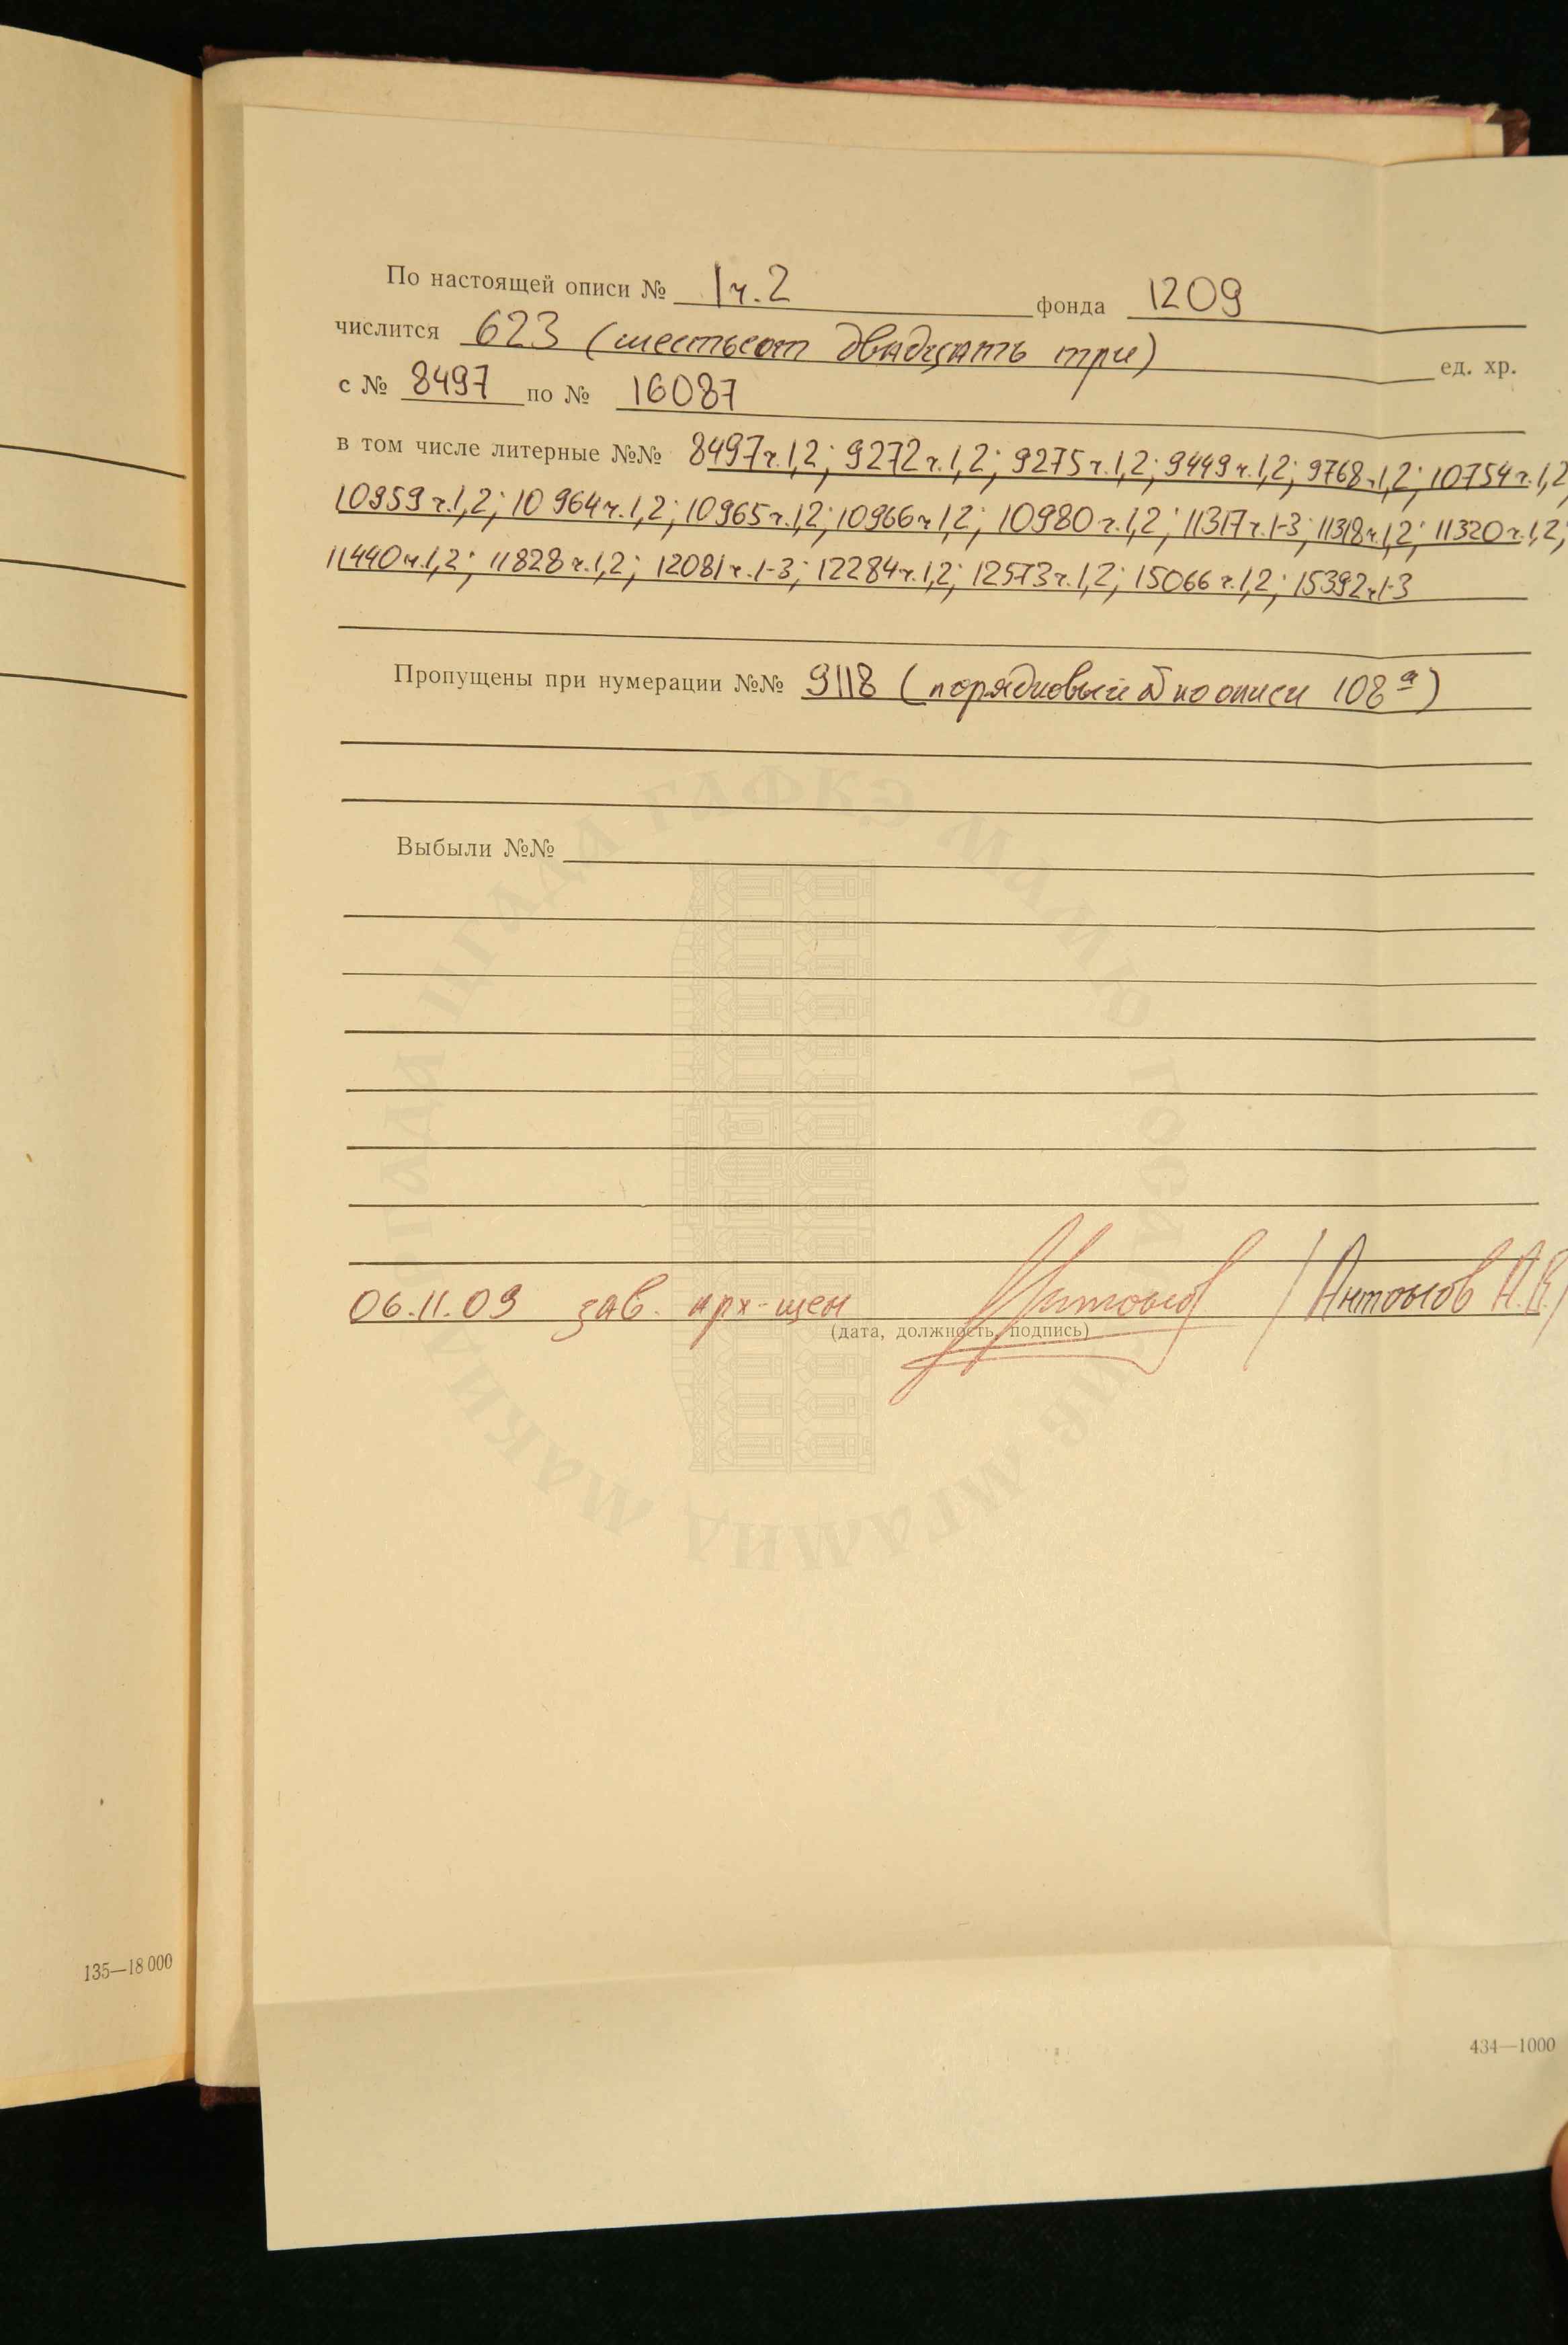 По настоящей описи № 1 ч.2 фонда 1209
числится 623 (шестьсот двадцать три) ед. хр.
с № 8497 по № 16087
в том числе литерные №№ 8497 ч.1,2; 9272 ч.1,2; 9275 ч.1,2; 9449 ч.1,2; 9768 ч.1,2; 10754 ч.1,2
10959 ч.1,2; 10964 ч.1,2; 10965 ч.1,2; 10966 ч.1,2; 10980 ч.1,2; 11317 ч.1-3; 11318 ч.1,2; 11320 ч.1,2;
11440 ч.1,2; 11828 ч.1,2; 12081 ч.1-3; 12284 ч.1,2; 12573 ч.1,2; 15066 ч.1,2; 15392 ч.1-3
Пропущены при нумерации №№ 9118 (порядковый № по описи 108а)
Выбыли №№
06.11.09 зав. арх-щем Антонов /Антонов А.В./
(дата, должность, подпись)
135—18 000
434—1000